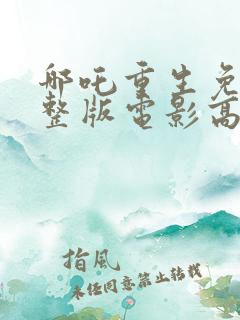 哪吒重生免
整版电影高
指風
未经同意禁止转载